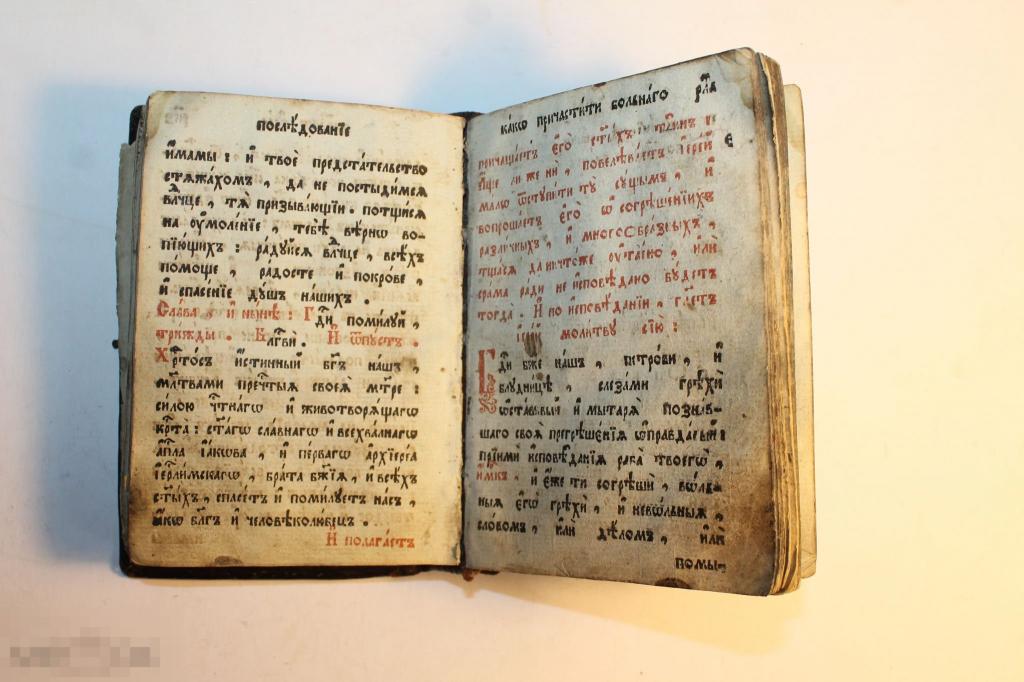 послѣдованїе
и҆мамы : и҆ твоѐ предстательство
стѧжахомъ , да не постыдимсѧ
влⷣчце , тѧ̀ призывающїи . потщисѧ
на ᲂу҆моленїе , тебѣ̀ вѣрнѡ во-
пїющихъ : радуйсѧ влⷣчце , всѣхъ
помоще , радосте и҆ покрове ,
и҆ спасенїе дꙋшъ нашихъ .
Слава , и҆ нынѣ : Гдⷭ҇и помилуй ,
трижды . Блгⷭ҇ви . И҆ ѿпустъ .
Хрⷭ҇тосъ и҆стинный бг҃ъ нашъ ,
млⷮ҇вами пречⷭ҇тыѧ своеѧ̀ мт҃ре :
силою чⷭ҇тнагѡ и҆ животворѧщагѡ
крⷭ҇та : ст҃агѡ славнагѡ и҆ всехвалнагѡ
а҆пⷭ҇ла і҆акѡва , и҆ перваго а҆рхїереа
і҆ерⷭ҇лимскагѡ , брата бж҃їѧ , и҆ всѣхъ
ст҃ыхъ , спасетъ и҆ помилуетъ насъ ,
ꙗ҆кѡ блг҃ъ и҆ человѣколюбецъ .
И҆ полагаетъ
какѡ причастити болнаго рл҃в
причащаетъ є҆го̀ ст҃ыхъ таинъ :
а҆ще ли же ни , повелѣваетъ і҆ерей
малѡ ѿступити тꙋ̀ сꙋщымъ , и҆
вопрошаетъ є҆го̀ ѡ҆ согрѣшенїихъ
различныхъ , и҆ многоѻбразныхъ ,
тщасѧ да ничтоже ᲂу҆таено , и҆лѝ
срама ради не и҆сповѣдано будетъ
тогда . И҆ по и҆сповѣданїи , гл҃етъ
і҆ерей молитву сїю̀ :
Гдⷭ҇и бж҃е нашъ , петрови , и҆
блудницѣ , слезами грѣхѝ
ѡ҆ставивый и҆ мытарѧ познав-
шаго своѧ̀ прегрѣшенїѧ ѡ҆правдавый :
прїими и҆сповѣданїѧ раба твоегѡ̀ ,
и҆м҃къ . и҆ є҆же ти согрѣшѝ , вѡль-
ныѧ є҆гѡ̀ грѣхѝ , и҆ невѡльныѧ ,
словомъ , и҆лѝ дѣломъ , и҆лѝ
помы-
є